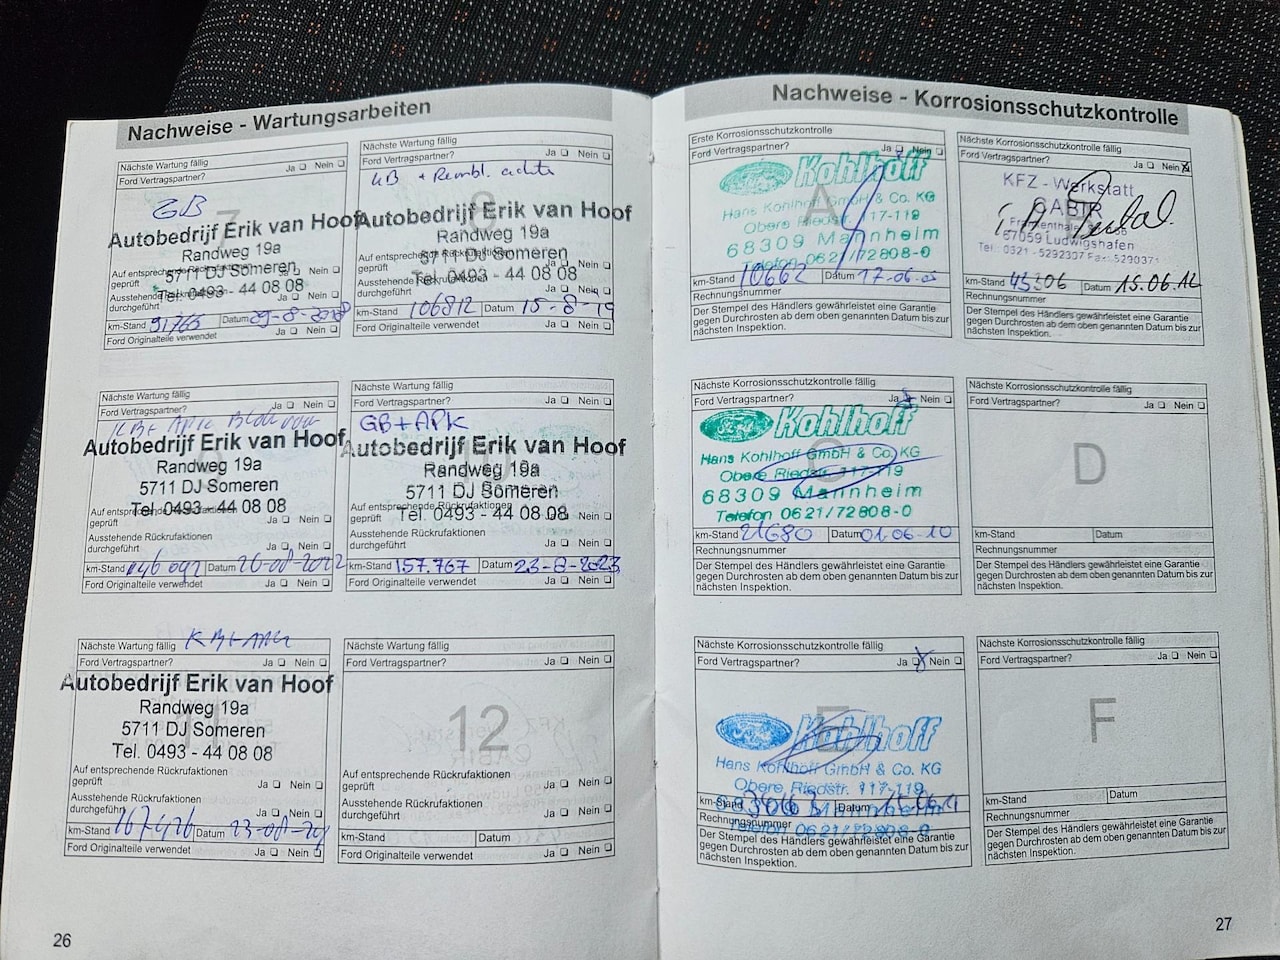 Nachweise - Wartungsarbeiten
Nächste Wartung fällig
Ford Vertragspartner? Ja Nein
GB
7
Autobedrijf Erik van Hoof
Randweg 19a
5711 DJ Someren
Tel. 0493 - 44 08 08
Auf entsprechende Rückrufaktionen
geprüft Ja Nein
Ausstehende Rückrufaktionen
durchgeführt Ja Nein
km-Stand 91765 Datum
Ford Originalteile verwendet Ja Nein
Nächste Wartung fällig
Ford Vertragspartner? Ja Nein
8
Autobedrijf Erik van Hoof
Randweg 19a
5711 DJ Someren
Tel. 0493 - 44 08 08
geprüft Ja Nein
Ausstehende Rückrufaktionen
durchgeführt Ja Nein
km-Stand 106812 Datum 15-8-19
Ford Originalteile verwendet Ja Nein
Nächste Wartung fällig
Ford Vertragspartner? Ja Nein
Autobedrijf Erik van Hoof
Randweg 19a
5711 DJ Someren
Tel. 0493 - 44 08 08
Auf entsprechende Rückrufaktionen
geprüft Ja Nein
Ausstehende Rückrufaktionen
durchgeführt Ja Nein
km-Stand 146 092 Datum 26-08-2022
Ford Originalteile verwendet Ja Nein
Nächste Wartung fällig
Ford Vertragspartner? Ja Nein
GB+APK
Autobedrijf Erik van Hoof
Randweg 19a
5711 DJ Someren
Tel. 0493 - 44 08 08
Auf entsprechende Rückrufaktionen
geprüft Ja Nein
Ausstehende Rückrufaktionen
durchgeführt Ja Nein
km-Stand 157.767 Datum 23-8-2023
Ford Originalteile verwendet Ja Nein
Nächste Wartung fällig KB+APK
Ford Vertragspartner? Ja Nein
11
Autobedrijf Erik van Hoof
Randweg 19a
5711 DJ Someren
Tel. 0493 - 44 08 08
Auf entsprechende Rückrufaktionen
geprüft Ja Nein
Ausstehende Rückrufaktionen
durchgeführt Ja Nein
km-Stand 167426 Datum 23-08-24
Ford Originalteile verwendet Ja Nein
Nächste Wartung fällig
Ford Vertragspartner? Ja Nein
12
Auf entsprechende Rückrufaktionen
geprüft Ja Nein
Ausstehende Rückrufaktionen
durchgeführt Ja Nein
km-Stand Datum
Ford Originalteile verwendet Ja Nein
26
Nachweise - Korrosionsschutzkontrolle
Erste Korrosionsschutzkontrolle
Ford Vertragspartner? Ja Nein
A
Ford Kohlhoff
Hans Kohlhoff GmbH & Co. KG
Obere Riedstr. 117-119
68309 Mannheim
Telefon 0621/72808-0
km-Stand 10662 Datum
Rechnungsnummer
Der Stempel des Händlers gewährleistet eine Garantie
gegen Durchrosten ab dem oben genannten Datum bis zur
nächsten Inspektion.
Nächste Korrosionsschutzkontrolle fällig
Ford Vertragspartner? Ja Nein
KFZ - Werkstatt
GABIR
67059 Ludwigshafen
km-Stand 45306 Datum 15.06.12
Rechnungsnummer
Der Stempel des Händlers gewährleistet eine Garantie
gegen Durchrosten ab dem oben genannten Datum bis zur
nächsten Inspektion.
Nächste Korrosionsschutzkontrolle fällig
Ford Vertragspartner? Ja Nein
C
Ford Kohlhoff
Hans Kohlhoff GmbH & Co. KG
Obere Riedstr. 117-119
68309 Mannheim
Telefon 0621/72808-0
km-Stand 21680 Datum 01.06.10
Rechnungsnummer
Der Stempel des Händlers gewährleistet eine Garantie
gegen Durchrosten ab dem oben genannten Datum bis zur
nächsten Inspektion.
Nächste Korrosionsschutzkontrolle fällig
Ford Vertragspartner? Ja Nein
D
km-Stand Datum
Rechnungsnummer
Der Stempel des Händlers gewährleistet eine Garantie
gegen Durchrosten ab dem oben genannten Datum bis zur
nächsten Inspektion.
Nächste Korrosionsschutzkontrolle fällig
Ford Vertragspartner? Ja Nein
E
Ford Kohlhoff
Hans Kohlhoff GmbH & Co. KG
Obere Riedstr. 117-119
68309 Mannheim
Telefon 0621/72808-0
km-Stand Datum
Rechnungsnummer
Der Stempel des Händlers gewährleistet eine Garantie
gegen Durchrosten ab dem oben genannten Datum bis zur
nächsten Inspektion.
Nächste Korrosionsschutzkontrolle fällig
Ford Vertragspartner? Ja Nein
F
km-Stand Datum
Rechnungsnummer
Der Stempel des Händlers gewährleistet eine Garantie
gegen Durchrosten ab dem oben genannten Datum bis zur
nächsten Inspektion.
27